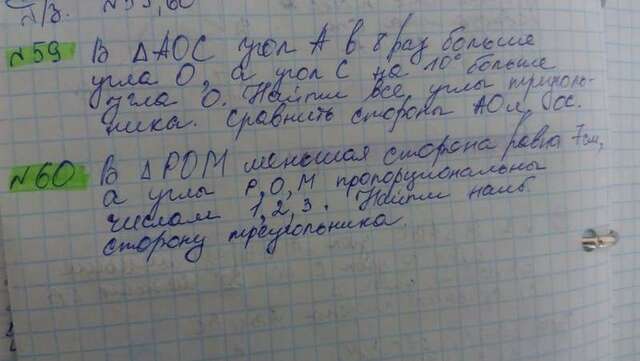 п/з. №59, 60
№59 В △AOC угол A в 8 раз больше
угла O, а угол C на 10° больше
угла O. Найти все углы треуголь-
ника. Сравнить стороны AO и OC.
№60 В △POM меньшая сторона равна 7см,
а углы P, O, M пропорциональны
числам 1, 2, 3. Найти наиб.
сторону треугольника.